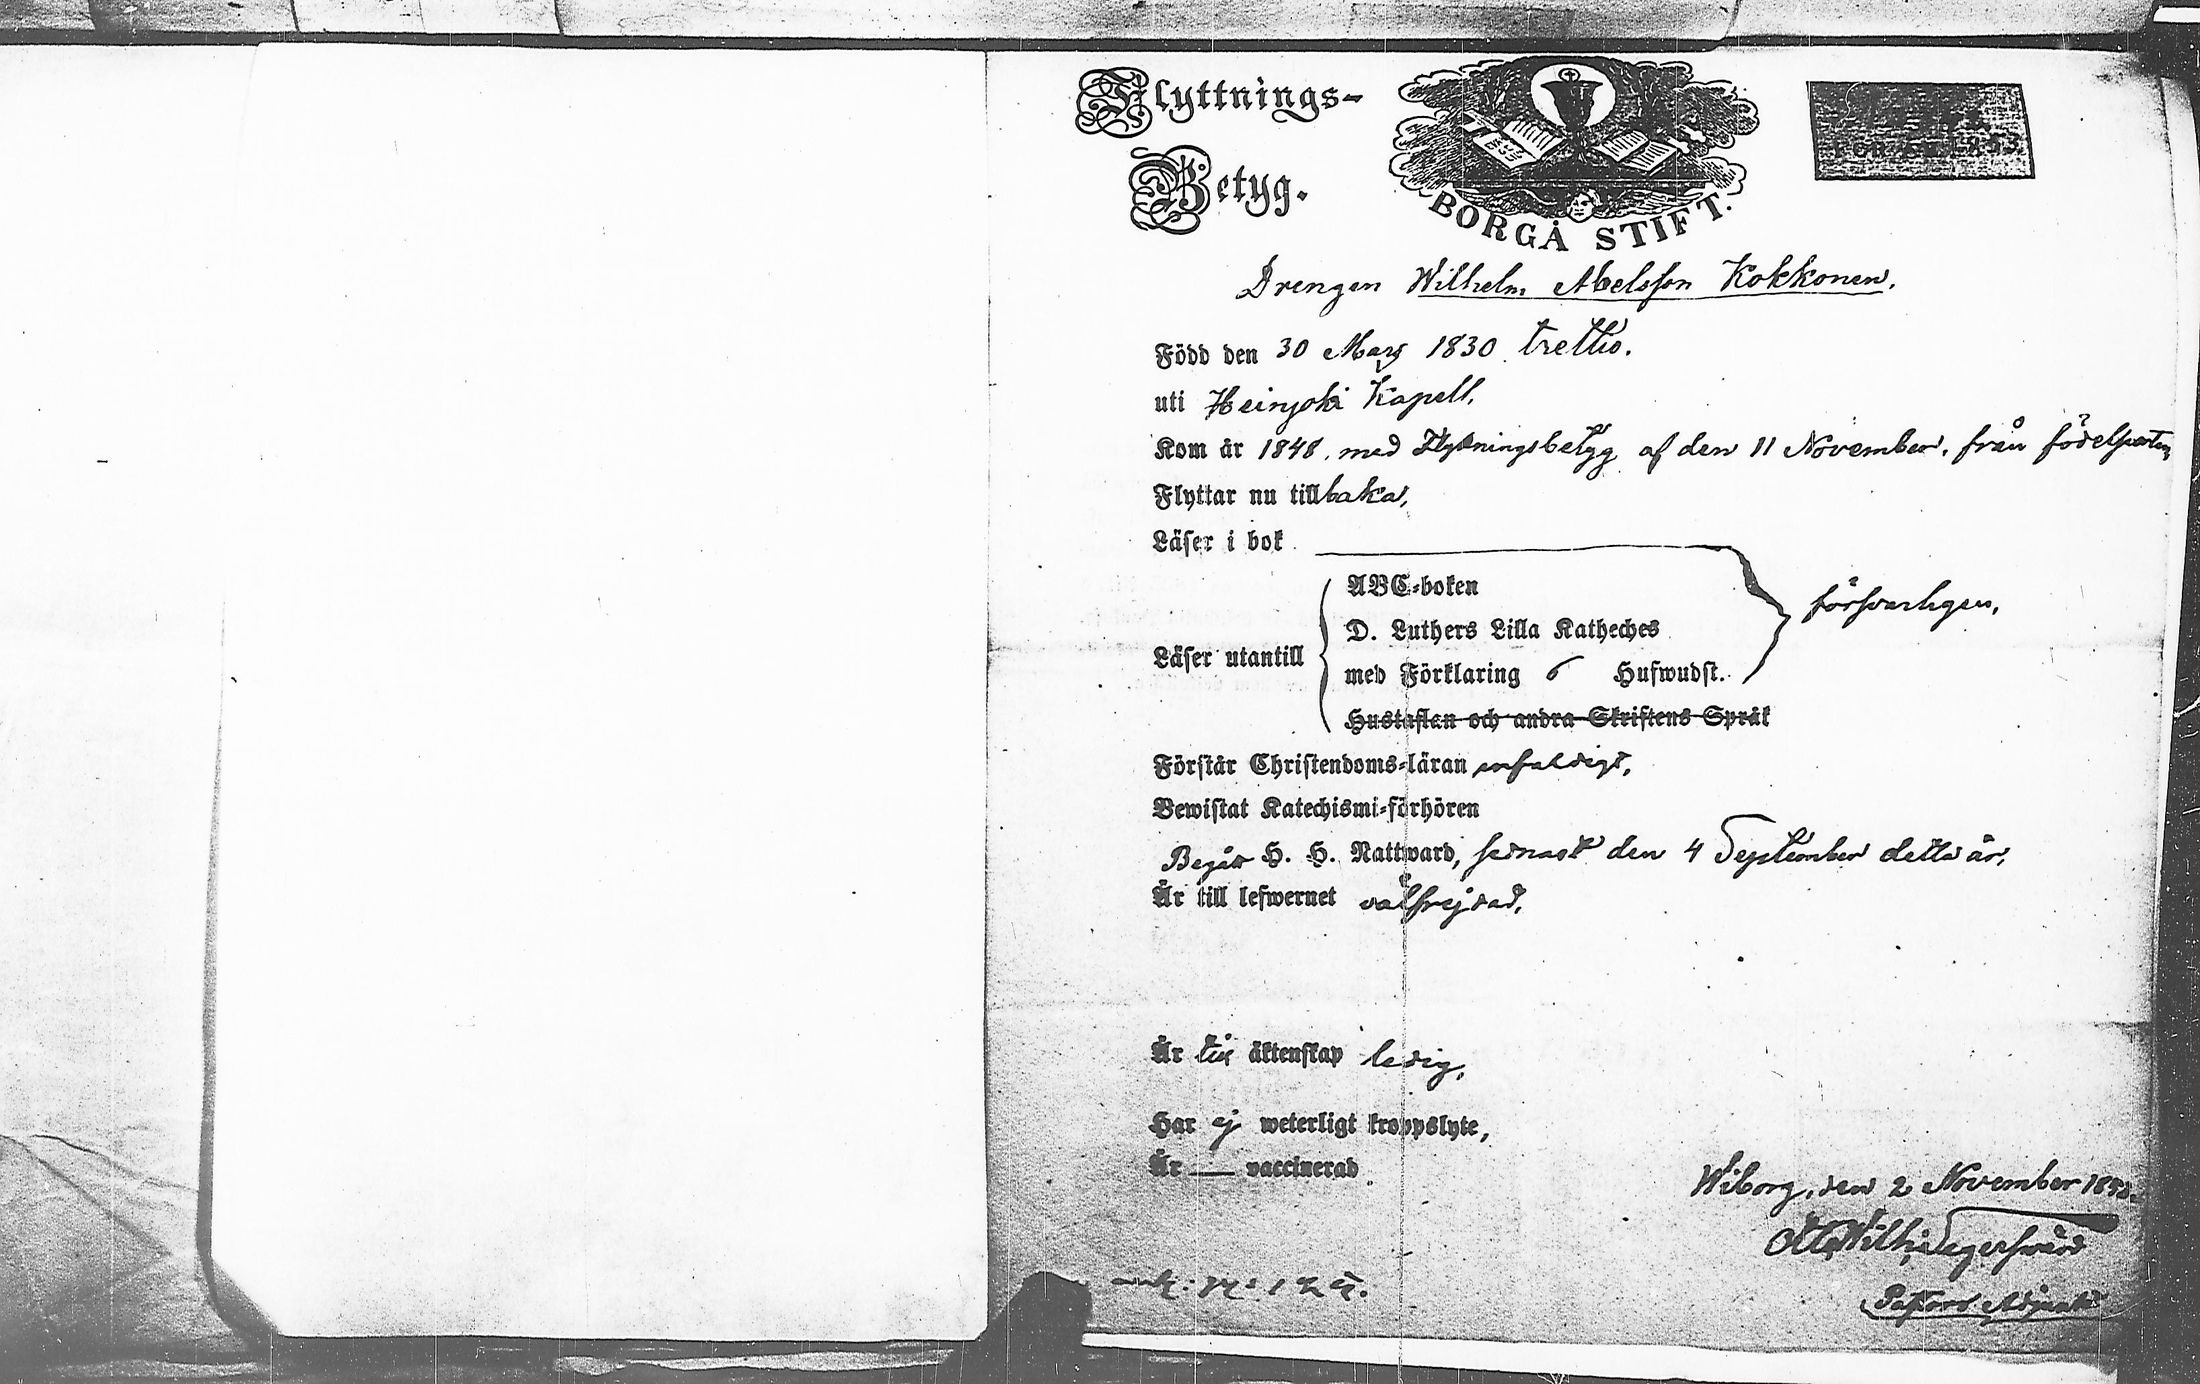 Flyttnings-
Betyg.
BORGÅ STIFT.
FÖR ÅR 1853.
Drengen Wilhelm Abelsson Kokkonen.
Född den 30 Mars 1830 trettio.
uti Heinjoki Kapell.
Kom år 1848. med Flyttningsbetyg af den 11 November. från födelseorten
Flyttar nu tillbaka,
Läser i bok
ABC-boken
D. Luthers Lilla Katheches
försvarligen,
Läser utantill
med Förklaring 6 Hufwudst.
Hustaflan och andra Skriftens Språk
Förstår Christendoms-läran enfaldigt,
Bewistat Katechismi-förhören
Begått H. H. Nattward, sednast den 4 September detta år,
Är till lefwernet välfrejdad,
Är till äktenskap ledig,
Har ej weterligt kroppslyte,
Är — vaccinerad
Wiborg, den 2 November 1853.
Otto Wilh.
Pastors Adjunkt